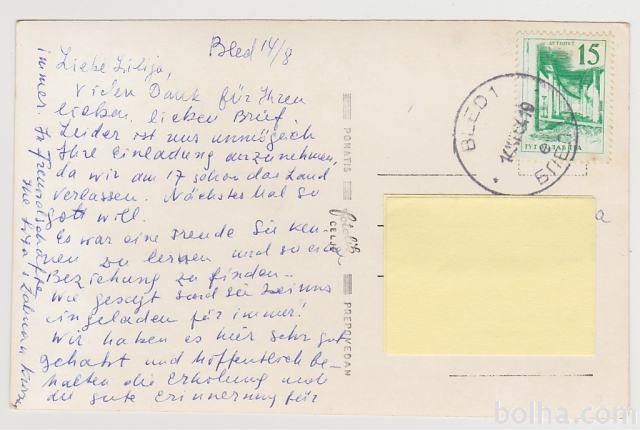 Bled 14/8
Liebe Lilija,
Vielen Dank für Ihren
lieben, lieben Brief.
Leider ist uns unmöglich
Ihre Einladung anzunehmen,
da wir am 17 schon das Land
verlassen. Nächstes Mal so
Gott will.
Es war eine Freude Sie ken-
nen zu lernen und so eine
Beziehung zu finden.
Wie gesagt sind Sie bei uns
eingeladen für immer!
Wir haben es hier sehr gut
gehabt und hoffentlich be-
halten die Erholung und
die gute Erinnerung für
immer. In Freundschaft
Ihre
PONATIS
fotolik
CELJE
PREPOVEDAN
15
JUGOSLAVIJA
BLED 1
БЛЕД 1
a
bolha.com